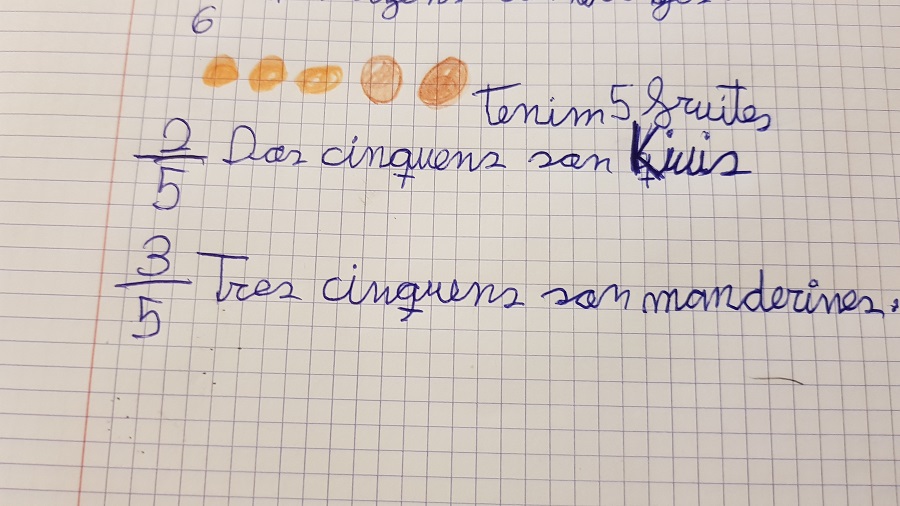 6
tenim 5 fruites
2/5 Dos cinquens son Kiwis
3/5 Tres cinquens son manderines.